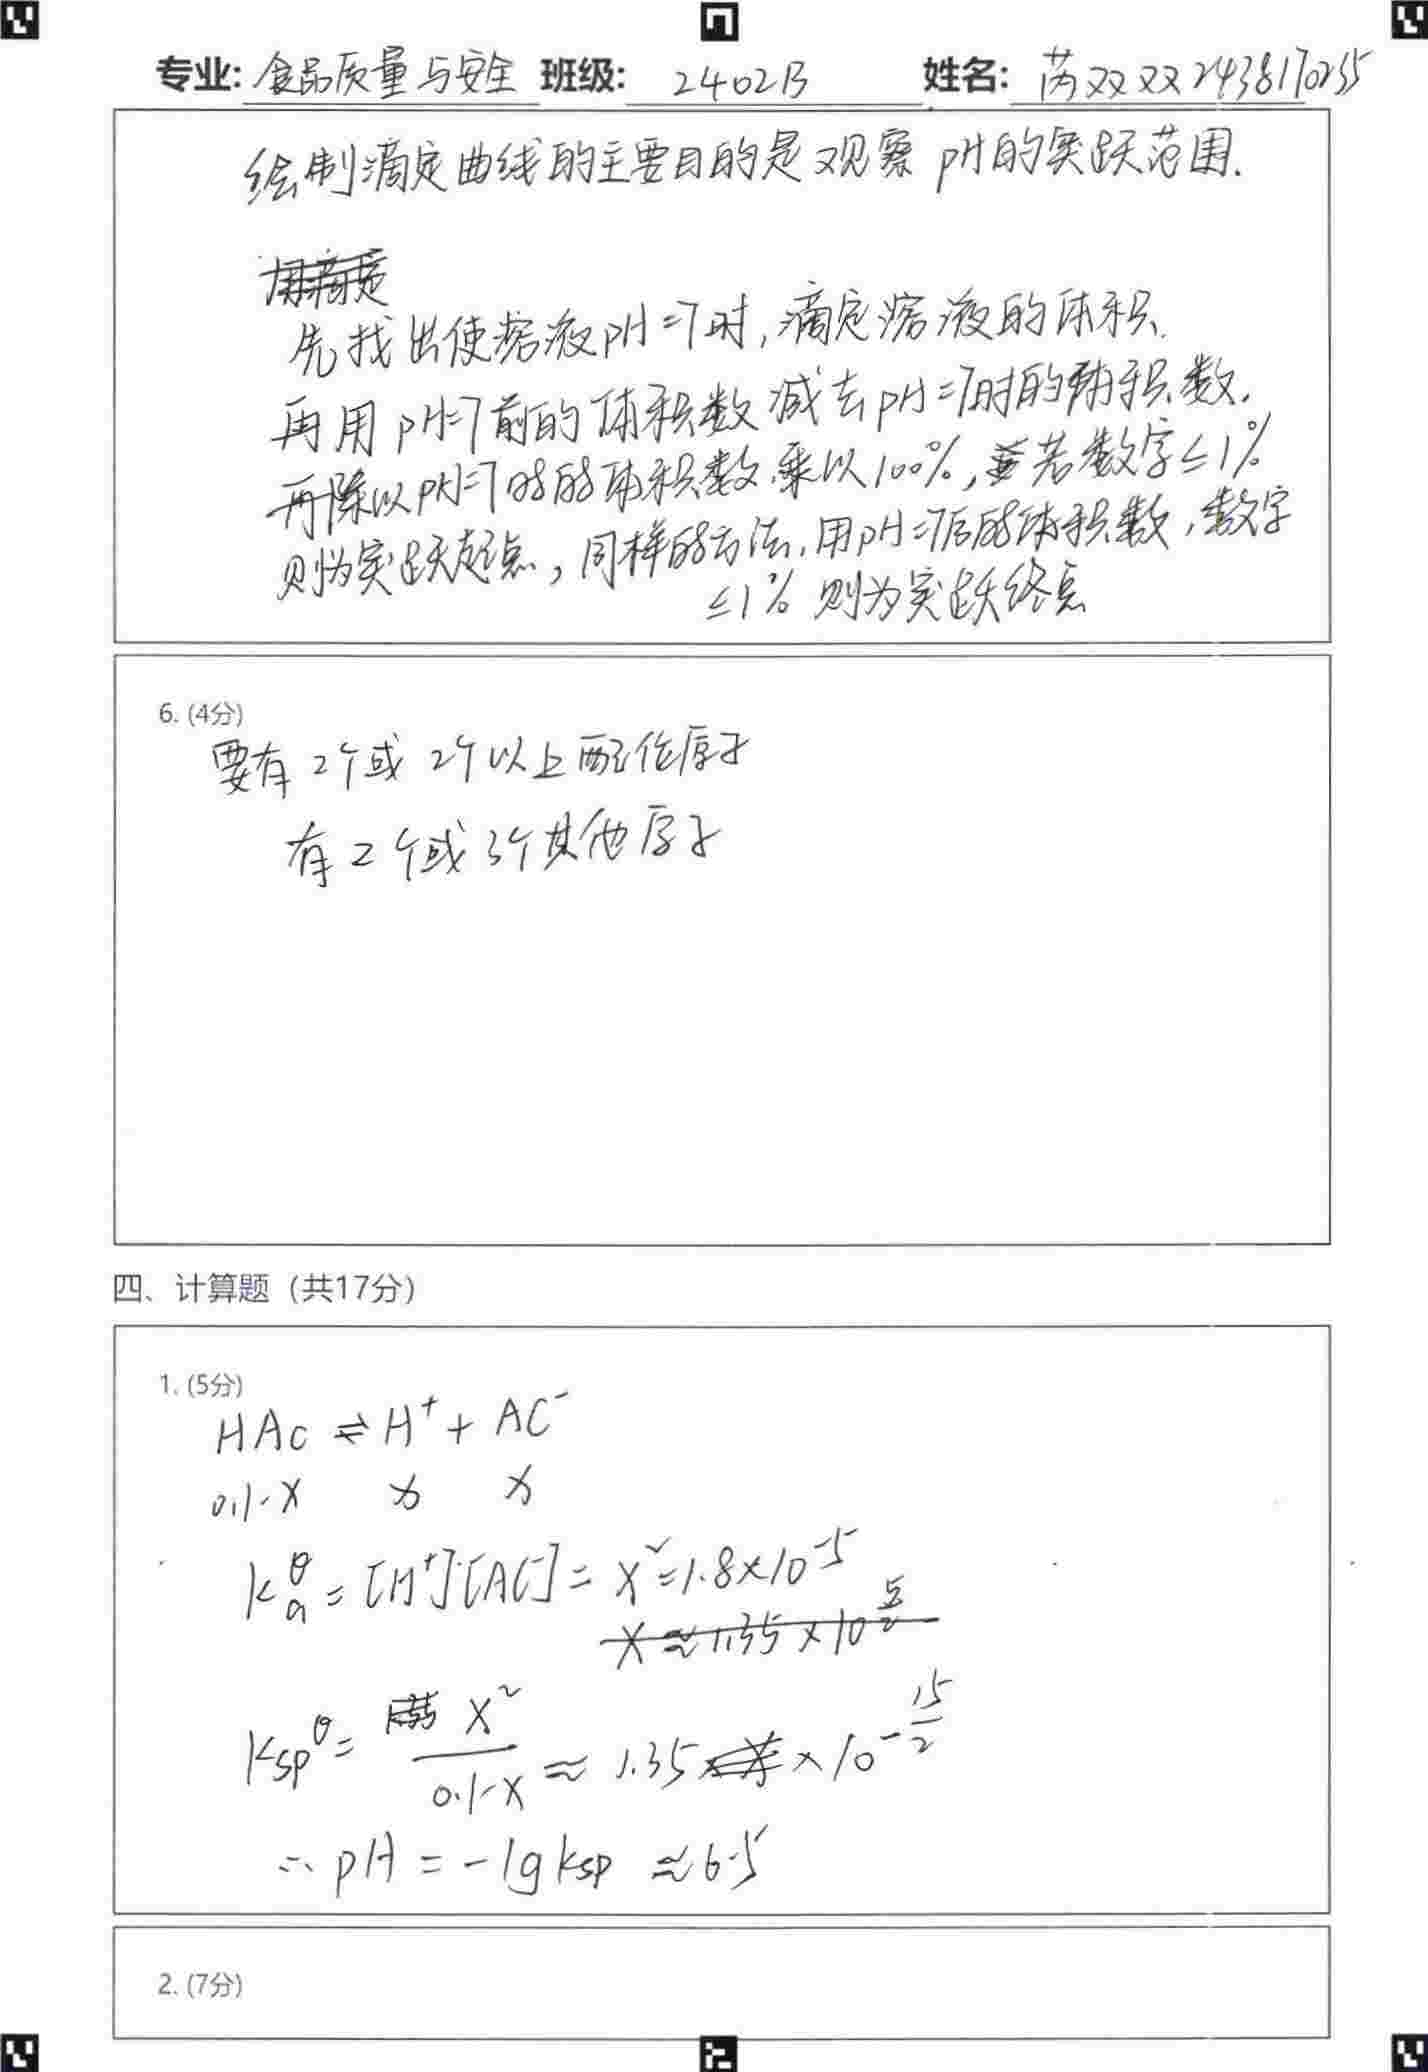 专业: 食品质量与安全 班级: 2402B 姓名: 芮双双2438170235
绘制滴定曲线的主要目的是观察 pH的突跃范围.
先找出使溶液pH=7时,滴定溶液的体积.
再用pH=7前的体积数减去pH=7时的体积数.
再除以pH=7时的体积数.乘以100%,若数字≤1%
则为突跃起点,同样的方法.用pH=7后的体积数,数字
≤1% 则为突跃终点
6. (4分)
要有2个或2个以上配位原子
有2个或3个其他原子
四、计算题（共17分）
1. (5分)
HAc ⇌ H⁺ + AC⁻
0.1-X x x
Kaᶿ = [H⁺]·[AC⁻] = X² = 1.8×10⁻⁵
X ≈ 1.35 × 10
Kspᶿ = X² / 0.1-X ≈ 1.35 × 10^(-15/2)
∴ pH = -lg Ksp ≈ 6.5
2. (7分)